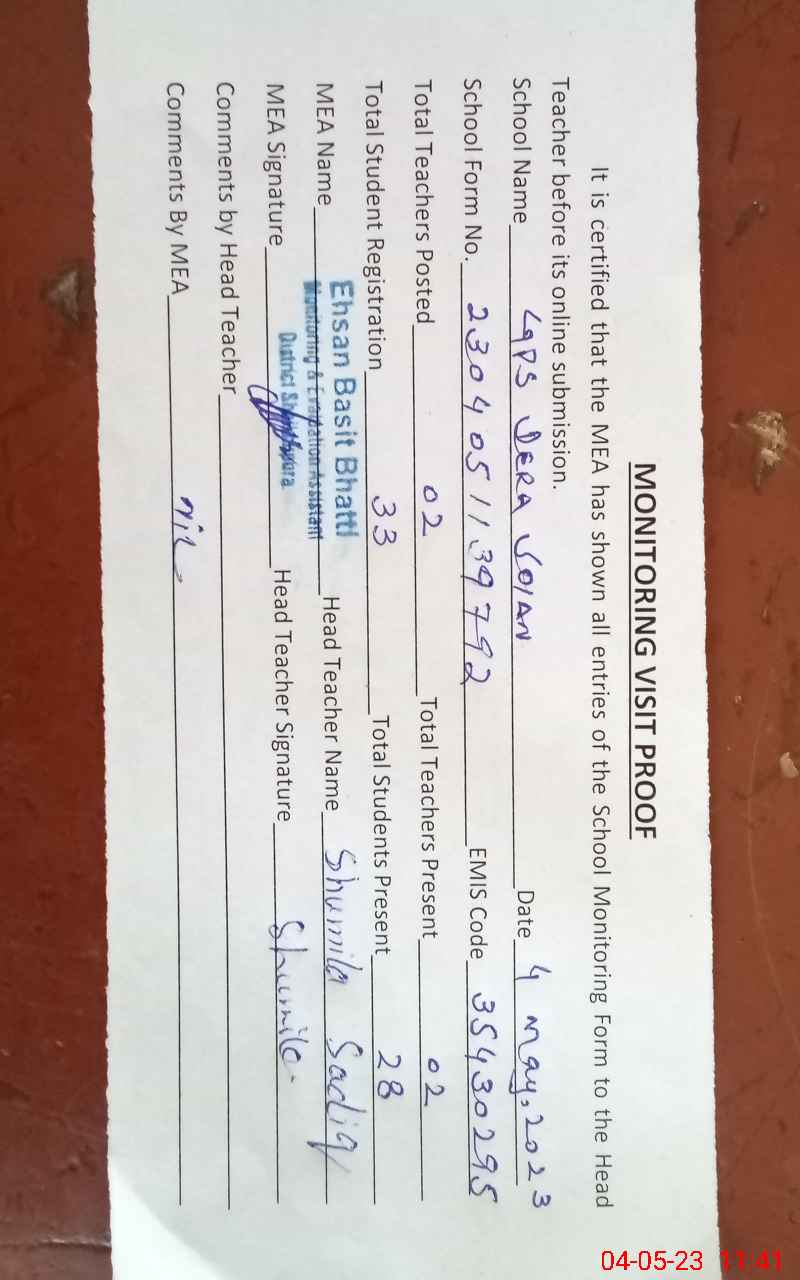 MONITORING VISIT PROOF
It is certified that the MEA has shown all entries of the School Monitoring Form to the Head
Teacher before its online submission.
School Name GPS DERA JOIAN Date 4 May, 2023
School Form No. 2304051139792 EMIS Code 35430295
Total Teachers Posted 02 Total Teachers Present 02
Total Student Registration 33 Total Students Present 28
MEA Name Ehsan Basit Bhatti Head Teacher Name Shumila Sadiq
Monitoring & Evaluation Assistant
District Sheikhupura
MEA Signature Head Teacher Signature Shumila
Comments by Head Teacher
Comments By MEA nil
04-05-23 11:41